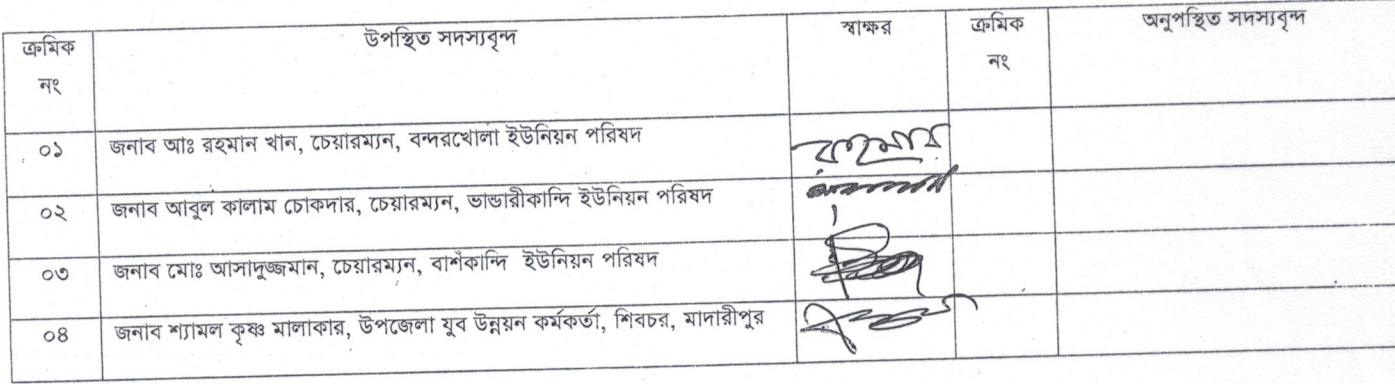 ক্রমিক নং উপস্থিত সদস্যবৃন্দ স্বাক্ষর ক্রমিক নং অনুপস্থিত সদস্যবৃন্দ
০১ জনাব আঃ রহমান খান, চেয়ারম্যান, বন্দরখোলা ইউনিয়ন পরিষদ
০২ জনাব আবুল কালাম চোকদার, চেয়ারম্যান, ভান্ডারীকান্দি ইউনিয়ন পরিষদ
০৩ জনাব মোঃ আসাদুজ্জমান, চেয়ারম্যন, বাশঁকান্দি ইউনিয়ন পরিষদ
০৪ জনাব শ্যামল কৃষ্ণ মালাকার, উপজেলা যুব উন্নয়ন কর্মকর্তা, শিবচর, মাদারীপুর